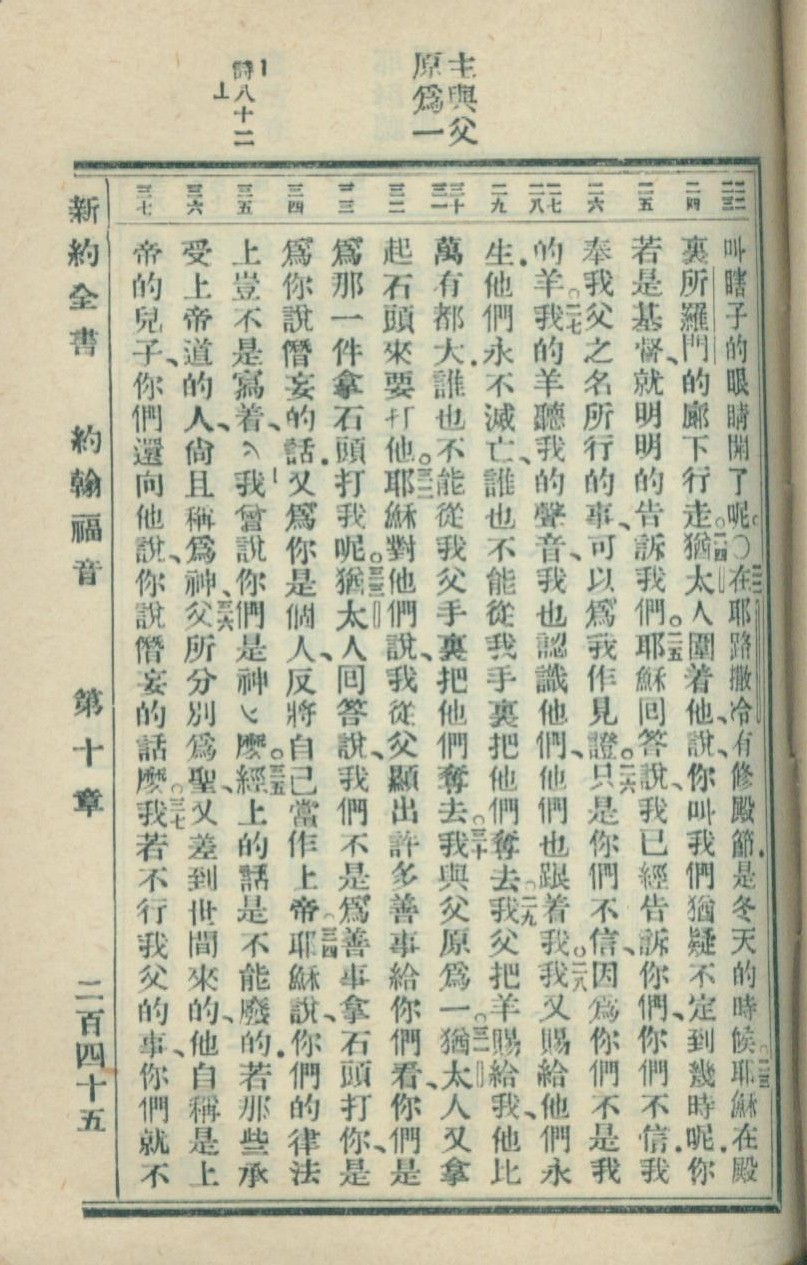 主與父
原爲一
詩八十二
上
二二 二三
二四
二五
二六
二七 二八
二九
三十 三一
三二
三三
三四
三五
三六
三七
叫瞎子的眼睛開了呢。〇二二在耶路撒冷有修殿節.是冬天的時候。二三耶穌在殿
裏所羅門的廊下行走。二四猶太人圍着他、說、你叫我們猶疑不定到幾時呢.你
若是基督、就明明的告訴我們。二五耶穌回答說、我已經告訴你們、你們不信.我
奉我父之名所行的事、可以爲我作見證。二六只是你們不信、因爲你們不是我
的羊。二七我的羊聽我的聲音、我也認識他們、他們也跟着我。二八我又賜給他們永
生.他們永不滅亡、誰也不能從我手裏把他們奪去。二九我父把羊賜給我、他比
萬有都大.誰也不能從我父手裏把他們奪去。三十我與父原爲一。三一猶太人又拿
起石頭來要打他。三二耶穌對他們說、我從父顯出許多善事給你們看、你們是
爲那一件拿石頭打我呢。三三猶太人回答說、我們不是爲善事拿石頭打你、是
爲你說僭妄的話.又爲你是個人、反將自己當作上帝。三四耶穌說、你們的律法
上豈不是寫着、我曾說你們是神麽。三五經上的話是不能廢的.若那些承
受上帝道的人、尙且稱爲神、三六父所分別爲聖、又差到世間來的、他自稱是上
帝的兒子、你們還向他說、你說僭妄的話麽。三七我若不行我父的事、你們就不
新約全書　約翰福音　第十章　二百四十五